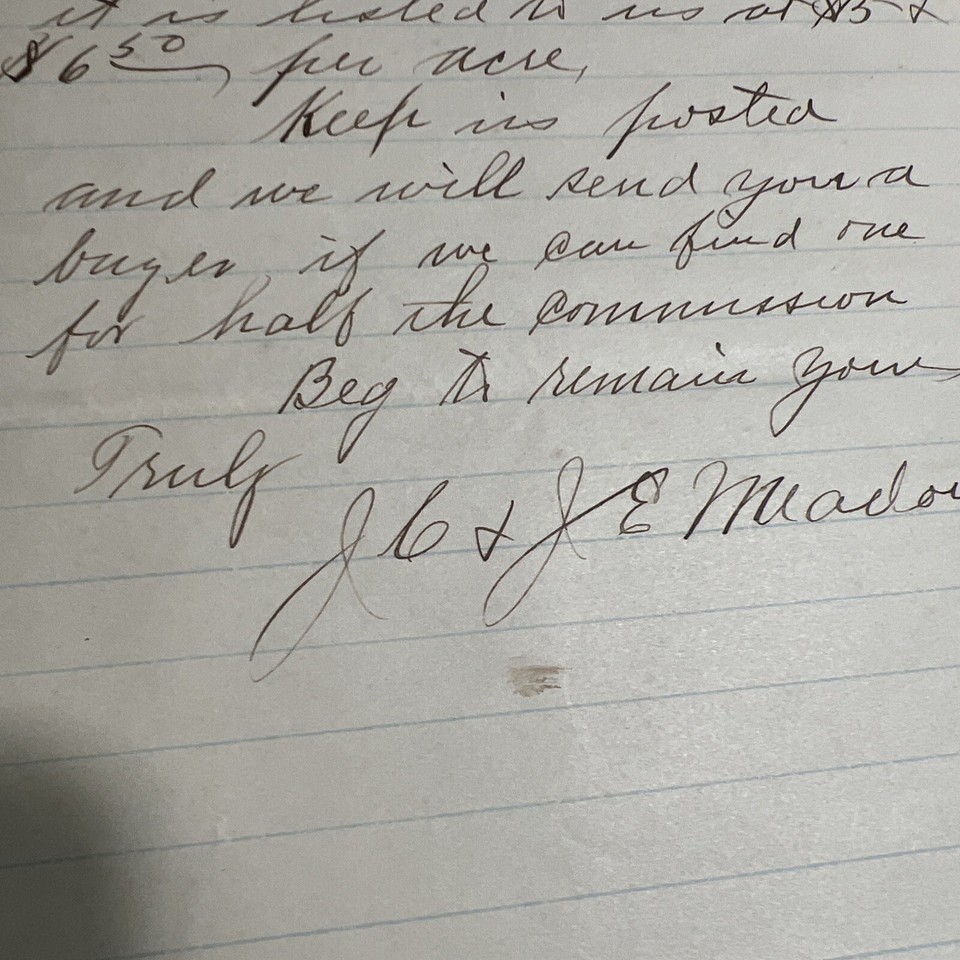 it is listed to us at $5 &
$6 50 per acre,
Keep us posted
and we will send you a
buyer, if we can find one
for half the commission
Beg to remain your
Truly
J C & J E Meadow